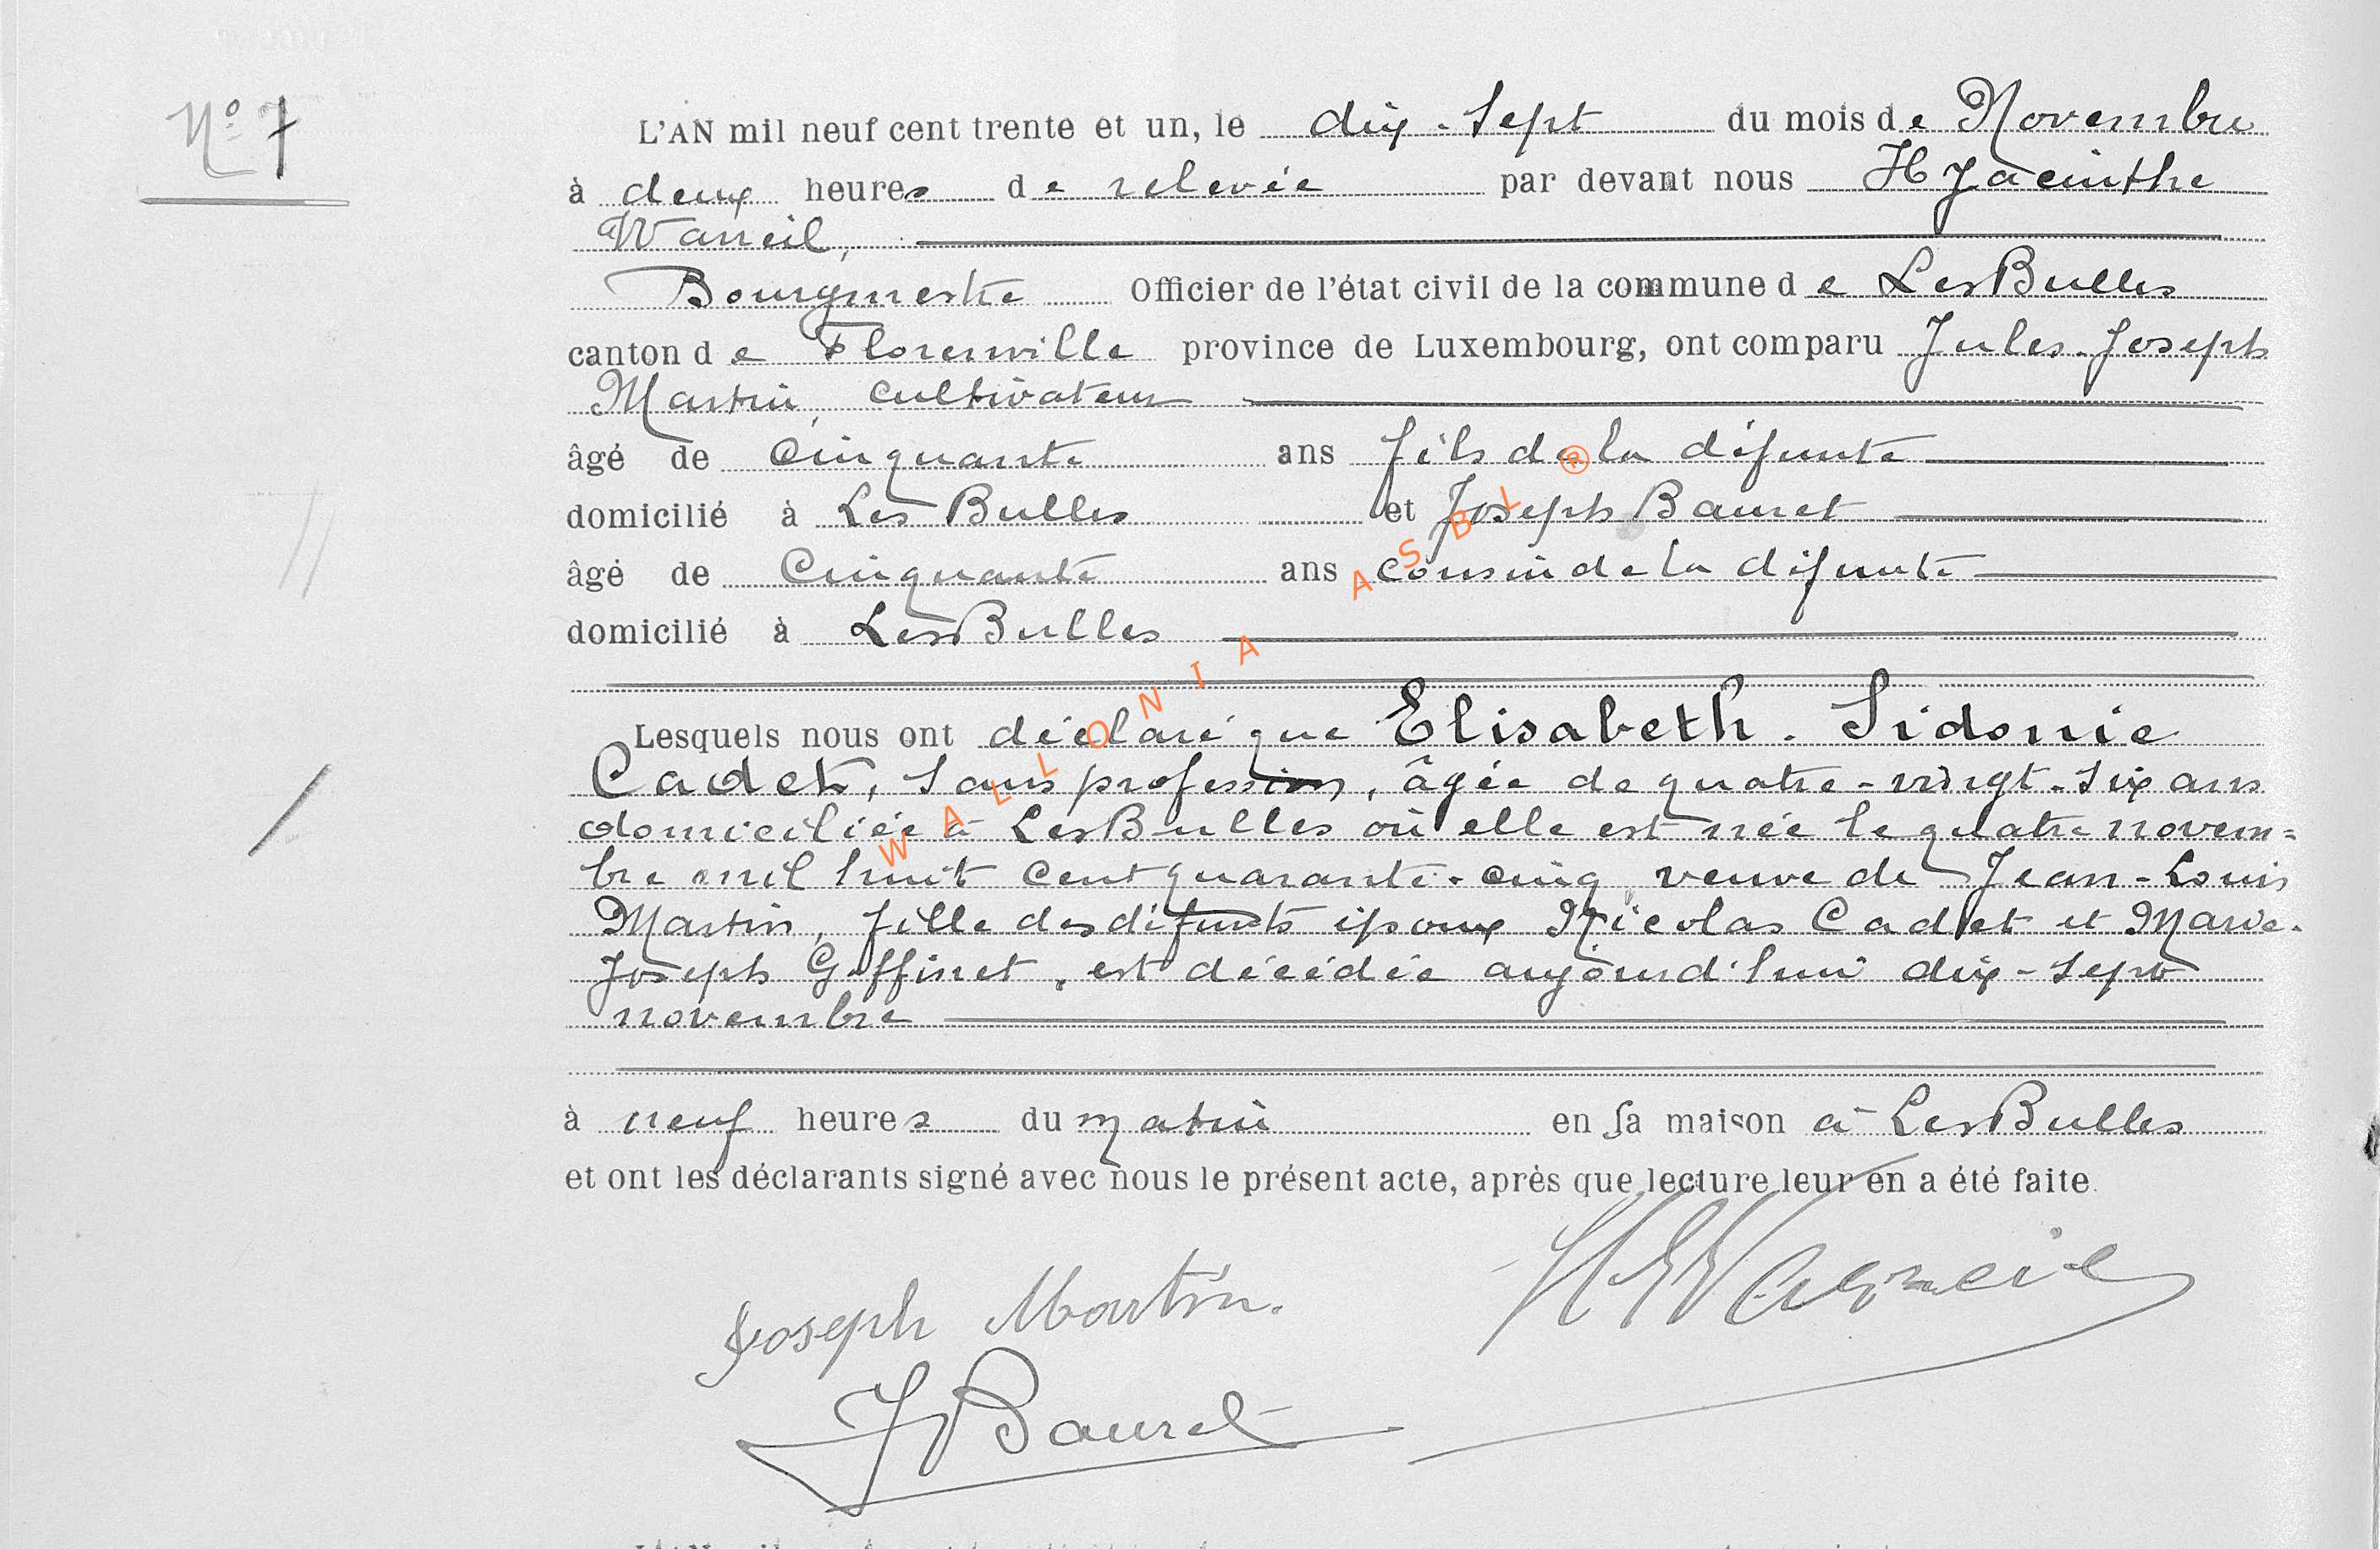 N° 7
L'AN mil neuf cent trente et un, le dix-sept du mois de Novembre
à deux heures de relevée par devant nous Hyacinthe
Warreil,
Bourgmestre Officier de l'état civil de la commune de Les Bulles
canton de Florenville province de Luxembourg, ont comparu Jules-Joseph
Martin, cultivateur
âgé de cinquante ans fils de la défunte
domicilié à Les Bulles et Joseph Bauret
âgé de Cinquante ans cousin de la défunte
domicilié à Les Bulles
Lesquels nous ont déclaré que Elisabeth-Sidonie
Cadet, sans profession, âgée de quatre-vingt-six ans
domiciliée à Les Bulles où elle est née le quatre novem=
bre mil huit cent quarante-cinq, veuve de Jean-Louis
Martin, fille des défunts époux Nicolas Cadet et Marie-
Joseph Goffinet, est décédée aujourd'hui dix-sept
novembre
à neuf heures du matin en sa maison à Les Bulles
et ont les déclarants signé avec nous le présent acte, après que lecture leur en a été faite.
Joseph Martin.
J Bauret
WALLONIA ASBL ®